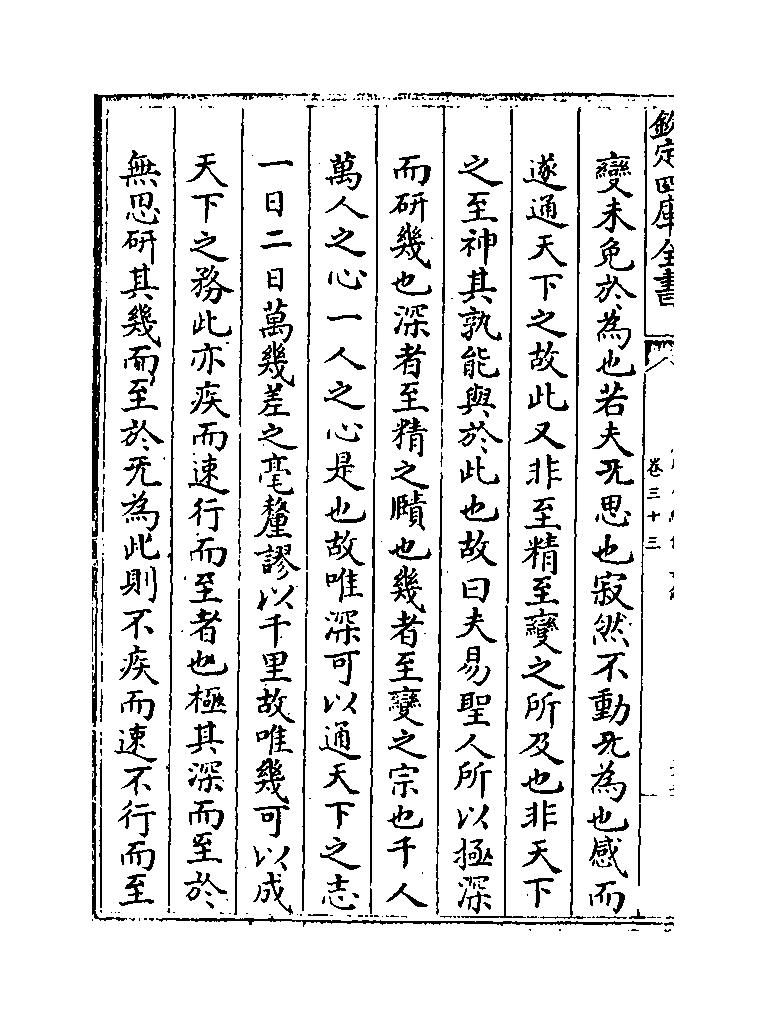 欽定四庫全書
卷三十三
變未免於為也若夫旡思也寂然不動旡為也感而
遂通天下之故此又非至精至變之所及也非天下
之至神其孰能與於此也故曰夫易聖人所以極深
而研幾也深者至精之賾也幾者至變之宗也千人
萬人之心一人之心是也故唯深可以通天下之志
一日二日萬幾差之毫釐謬以千里故唯幾可以成
天下之務此亦疾而速行而至者也極其深而至於
無思研其幾而至於旡為此則不疾而速不行而至